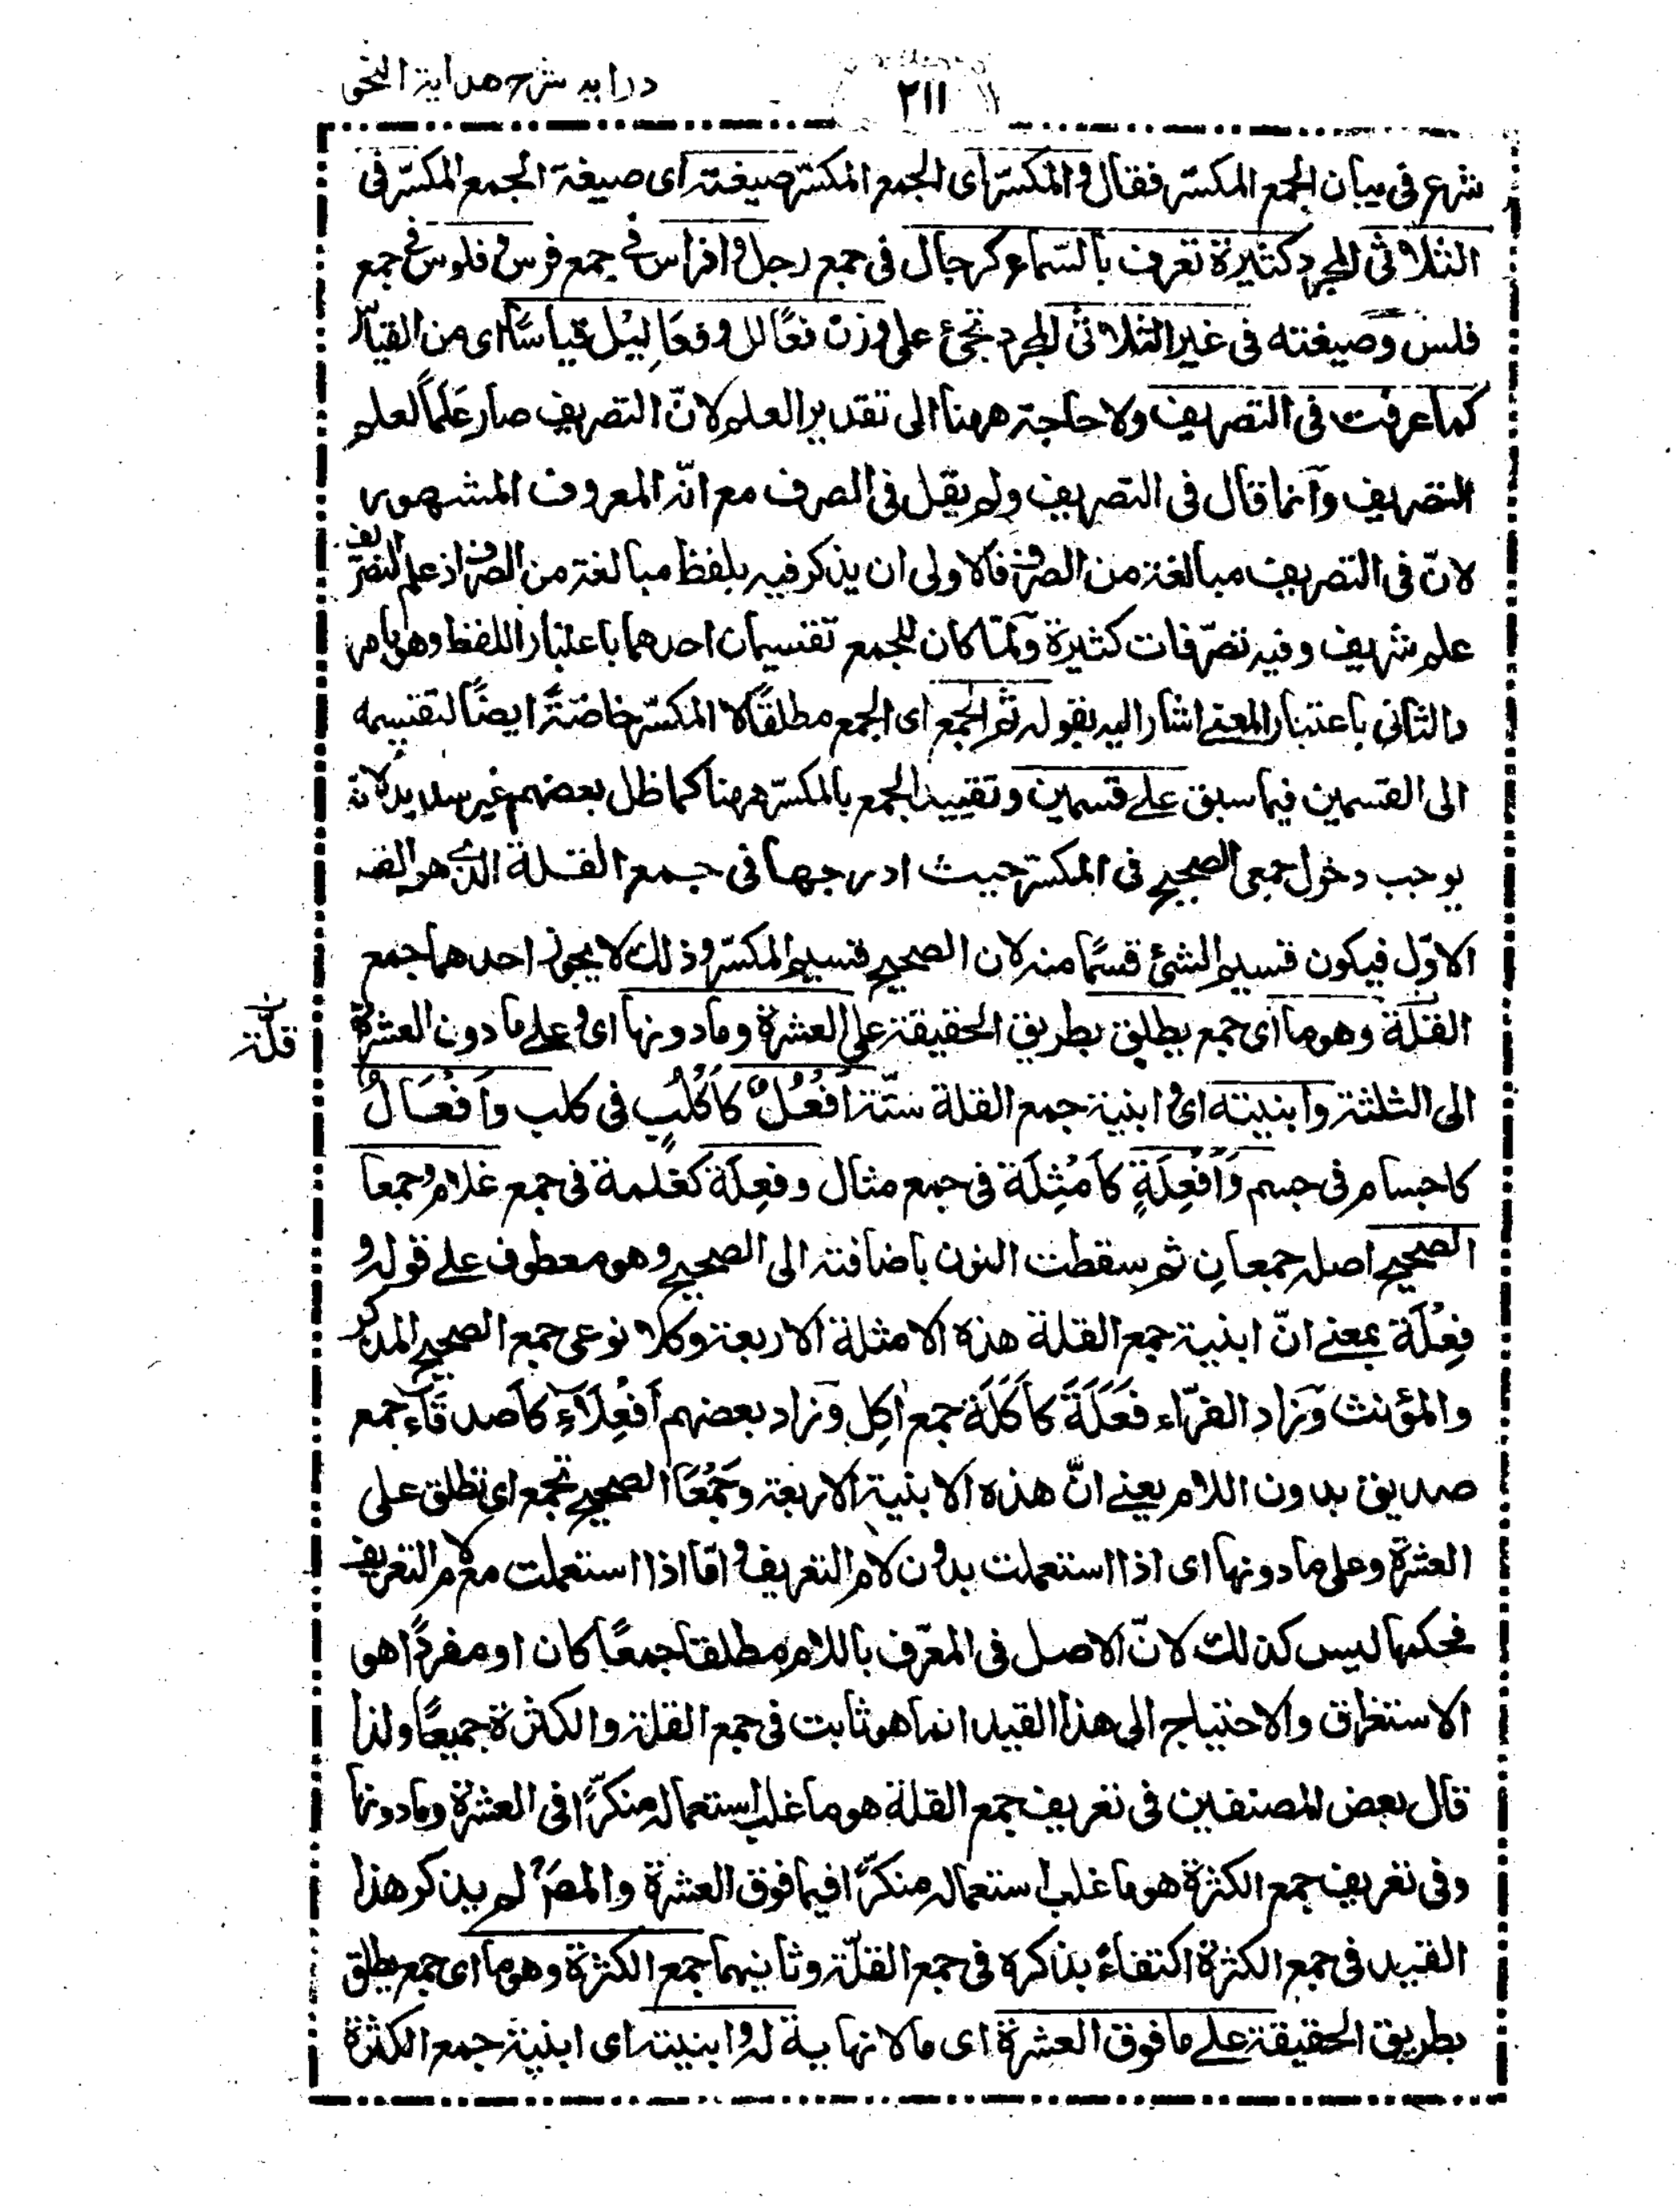 ٢١١
درايه شرح هداية النحو
شرع فى بيان الجمع المكسّر فقال والمكسّر اى الجمع المكسّر صيغته اى صيغة الجمع المكسّر فى
الثلاثى المجرد كثيرة تعرف بالسّماع كرجال فى جمع رجل وافراس فى جمع فرس وفلوس فى جمع
فلس وصيغته فى غير الثلاثى المجرد تجئ على وزن فعَالل وفعَاليل قياسًا اى من القياس
كما عرفت فى التصريف ولا حاجة ههنا الى تقدير العلم لانّ التصريف صار عَلَمًا لعلم
التصريف وانما قال فى التصريف ولم يقل فى الصرف مع انّه المعروف المشهور
لانّ فى التصريف مبالغة من الصرف فالاولى ان يذكر فيه بلفظ مبالغة من الصرف اذ علم التصريف
علم شريف وفيه تصرّفات كثيرة ولمّا كان للجمع تقسيمان احدهما باعتبار اللفظ وهو ما مر
والثانى باعتبار المعنے اشار اليه بقوله ثم الجمع اى الجمع مطلقًا لا المكسّر خاصّةً ايضًا لتقسيمه
الى القسمين فيما سبق علے قسمين وتقييد الجمع بالمكسّر ههنا كما ظل بعضهم غير سديد لانه
يوجب دخول جمعى الصحيح فى المكسّر حيث ادرجها فى جمع القلة الذے هو القسم
الاوّل فيكون قسيم الشئ قسمًا منه لان الصحيح قسيم المكسّر وذلك لا يجوز احدهما جمع
القلّة وهو ما اى جمع يطلق بطريق الحقيقة على العشرة وما دونها اى وعلے ما دون العشرة
قلّة
الى الثلثة وابنيته اى ابنية جمع القلة ستّة اَفْعُلٌ كاَكْلُبٍ فى كلب واَفْعَالٌ
كاجسام فى جسم وَاَفْعِلَةٍ كاَمْثِلَة فى جمع مثال وفِعِلَة كغلمة فى جمع غلام وجمعا
الصحيح اصله جمعانِ ثم سقطت النون باضافته الى الصحيح وهو معطوف علے قوله و
فِعْلَة بمعنے انّ ابنية جمع القلة هذه الامثلة الاربعة وكلا نوعى جمع الصحيح المذكر
والمؤنث وزاد الفرّاء فَعَلَة كاَكَلَة جمع اٰكِل وزاد بعضهم اَفْعِلَآءِ كاَصدقآء جمع
صديق بدون اللام يعنے انّ هذه الابنية الاربعة وجَمْعَا الصحيح تجمع اى تطلق على
العشرة وعلى ما دونها اى اذا استعملت بدون لام التعريف واما اذا استعملت مع لام التعريف
فحكمها ليس كذلك لانّ الاصل فى المعرّف باللام مطلقا جمعًا كان او مفردًا هو
الاستغراق والاحتياج الى هذا القيد انما هو ثابت فى جمع القلة والكثرة جميعًا ولذا
قال بعض المصنفين فى تعريف جمع القلة هو ما غلب استعماله منكّرًا فى العشرة وما دونها
وفى تعريف جمع الكثرة هو ما غلب استعماله منكّرًا فيما فوق العشرة والمصؒ لم يذكر هذا
القيد فى جمع الكثرة اكتفاءً بذكره فى جمع القلّة وثانيهما جمع الكثرة وهو ما اى جمع يطلق
بطريق الحقيقة علے ما فوق العشرة اى ما لا نهاية له وابنيته اى ابنية جمع الكثرة